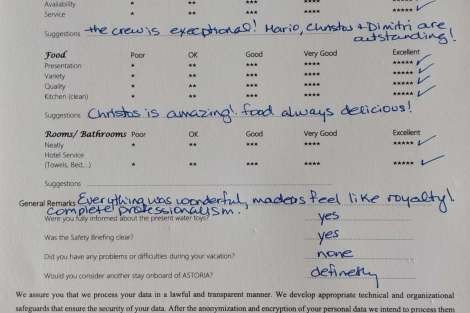 Availability * ** *** **** *****
Service * ** *** **** *****
Suggestions the crew is exceptional! Mario, Christos + Dimitri are
outstanding!
Food Poor OK Good Very Good Excellent
Presentation * ** *** **** *****
Variety * ** *** **** *****
Quality * ** *** **** *****
Kitchen (clean) * ** *** **** *****
Suggestions Christos is amazing! food always delicious!
Rooms/ Bathrooms Poor OK Good Very Good Excellent
Neatly * ** *** **** *****
Hotel Service
(Towels, Bed,...) * ** *** **** *****
Suggestions
General Remarks Everything was wonderful, made us feel like royalty!
complete professionalism.
Were you fully informed about the present water toys? yes
Was the Safety Briefing clear? yes
Did you have any problems or difficulties during your vacation? none
Would you consider another stay onboard of ASTORIA? definetly
We assure you that we process your data in a lawful and transparent manner. We develop appropriate technical and organizational
safeguards that ensure the security of your data. After the anonymization and encryption of your personal data we intend to process them